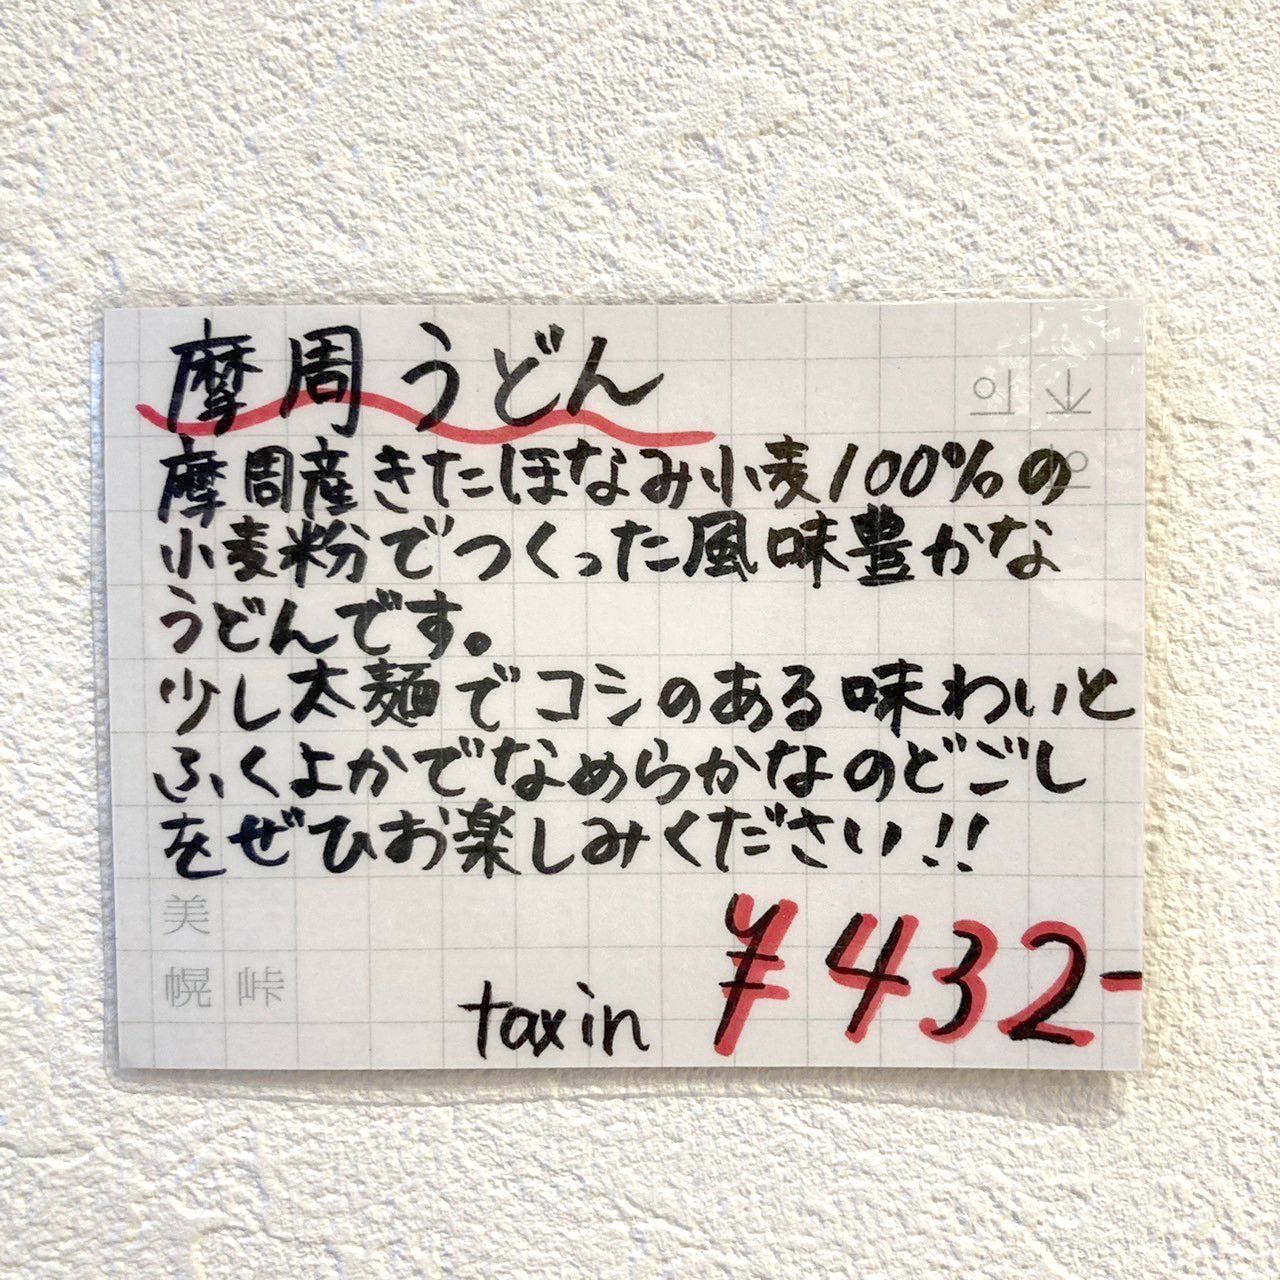 摩周うどん
摩周産きたほなみ小麦100%の
小麦粉でつくった風味豊かな
うどんです。
少し太麺でコシのある味わいと
ふくよかでなめらかなのどごし
をぜひお楽しみください!!
美
幌 峠
tax in ¥432-